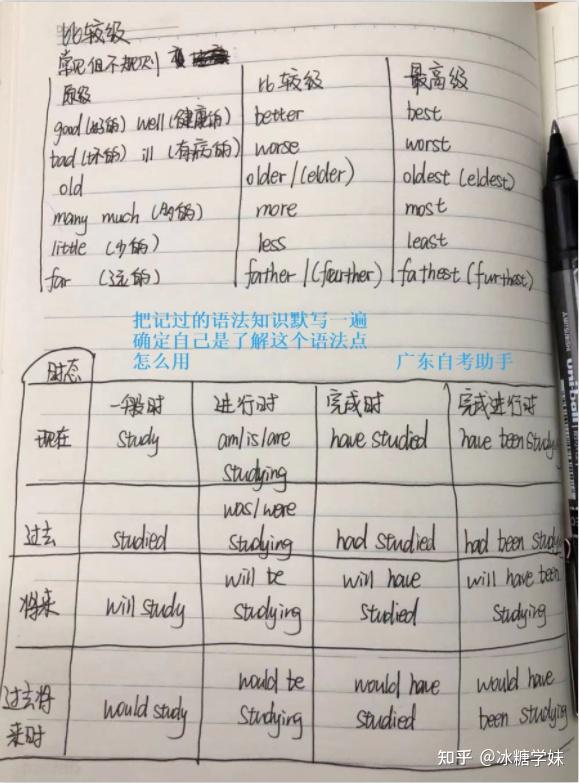 比较级
常见但不规则
原级 比较级 最高级
good(好的) well(健康的) better best
bad(坏的) ill(有病的) worse worst
old older/(elder) oldest(eldest)
many much(多的) more most
little (少的) less least
far (远的) farther/(further) fathest(furthest)
把记过的语法知识默写一遍
确定自己是了解这个语法点
怎么用 广东自考助手
时态
一般时 进行时 完成时 完成进行时
现在 study am/is/are have studied have been studying
studying
was/were
过去 studied studying had studied had been study
will be will have will have been
将来 will study studying studied studying
would be would have would have
过去将 would study studying studied been studying
来时
知乎 @冰糖学妹